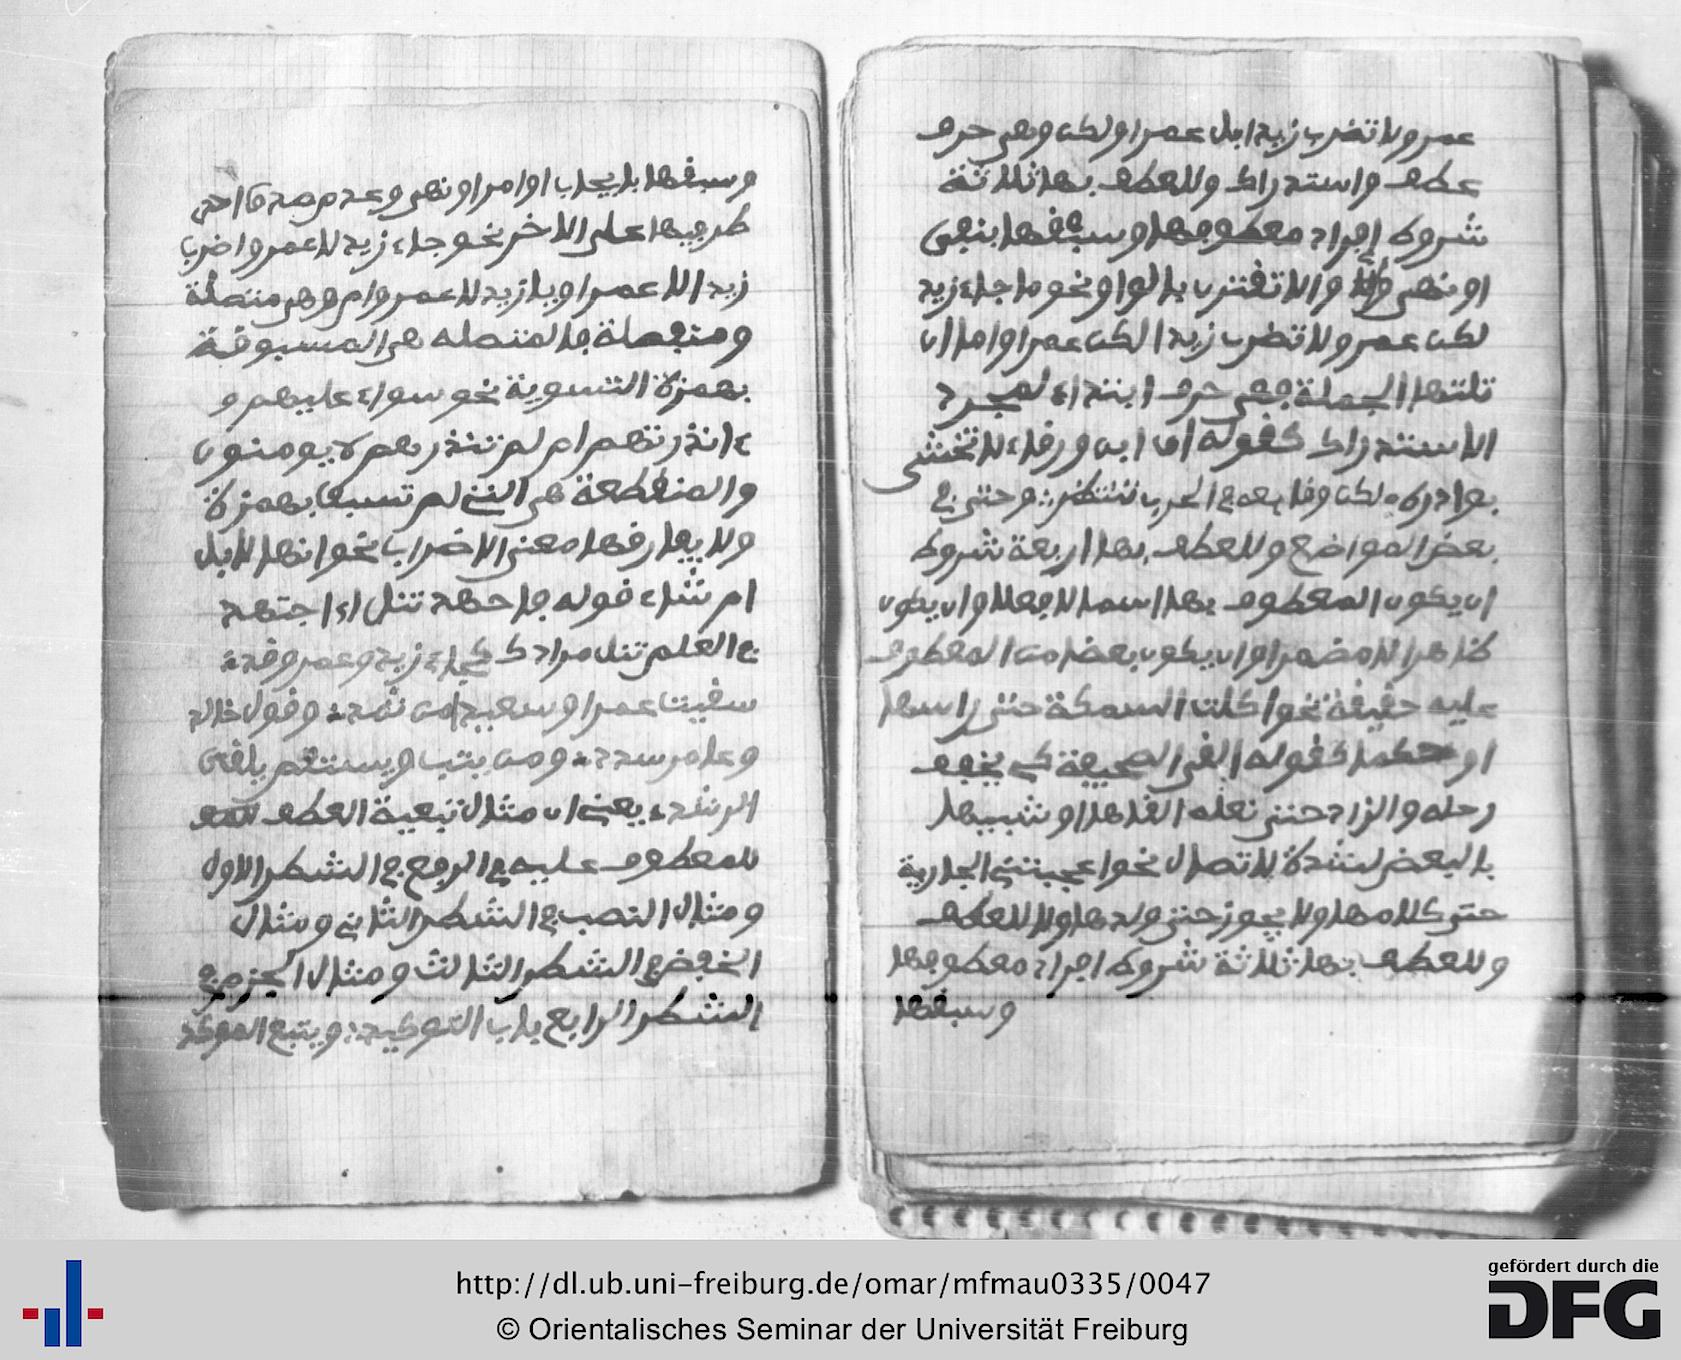 عمرو ولا تضرب زيدا بل عمرا ولكن وهي حرف
عطف واستدراك وللعطف بها ثلاثة
شروط إفراد معطوفها وسبقها بنفي
او نهي والا تقترن بالواو نحو ما جاء زيد
لكن عمرو ولا تضرب زيدا لكن عمرا واما ان
تلتها الجملة فهي حرف ابتداء لمجرد
الاستدراك كقوله ان ابن ورقاء لا تخشى
بوادره لكن وقايعه في الحرب تنتظر وحتى في
بعض المواضع وللعطف بها اربعة شروط
ان يكون المعطوف بها اسما لا فعلا وان يكون
ظاهرا لا مضمرا وان يكون بعضا من المعطوف
عليه حقيقة نحو اكلت السمكة حتى راسها
او حكما كقوله القى الصحيفة كي يخفف
رحله والزاد حتى نعله القاها او شبيها
بالبعض لشدة الاتصال نحو اعجبتني الجارية
حتى كلامها ولا يجوز حتى ولدها ولا للعطف
وللعطف بها ثلاثة شروط افراد معطوفها
وسبقها
وسبقها بايجاب او امر او نهي وعدم صدق احد
طرفيها على الاخر نحو جاء زيد لا عمرو اضرب
زيدا لا عمرا ويا زيد لا عمرو وام وهي متصلة
ومنفصلة فالمتصله هي المسبوقة
بهمزة التسوية نحو سواء عليهم و
ءانذرتهم ام لم تنذرهم لا يومنون
والمنقطعة هي التي لم تسبق بهمزة
ولا يفارقها معنى الاضراب نحو انها لابل
ام شاء قوله فاحطه تنل اي اجتهد
في العلم تنل مرادك كجاء زيد وعمرو وقد
سقيت عمرا وسعيدا من ثمد وقول خالد
وعامر سدد ومن يتب ويستقم يلقى
الرشد يعني ان مثال تبعية العطف
للمعطوف عليه في الرفع في الشطر الاول
ومثال النصب في الشطر الثاني ومثال
الخفض في الشطر الثالث ومثال الجزم في
الشطر الرابع باب التوكيد ويتبع الموكد
http://dl.ub.uni-freiburg.de/omar/mfmau0335/0047
© Orientalisches Seminar der Universität Freiburg
gefördert durch die
DFG